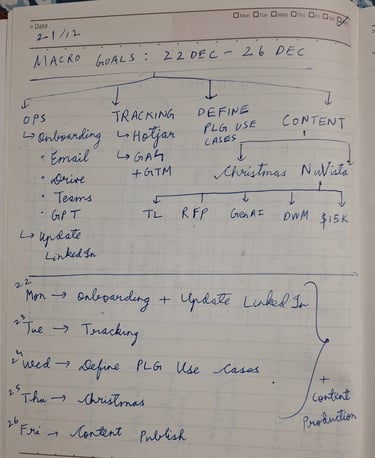 > Date
21/12
Mon Tue Wed Thu Fri Sat
MACRO GOALS : 22 DEC - 26 DEC
OPS
↳ Onboarding
• Email
• Drive
• Teams
• GPT
↳ Update
LinkedIn
TRACKING
↳ Hotjar
↳ GA4
+ GTM
DEFINE
PLG USE
CASES
CONTENT
Christmas NuVista
TL RFP GenAI DWM $15K
22 Mon → Onboarding + Update LinkedIn
23 Tue → Tracking
24 Wed → Define PLG Use Cases
25 Thu → Christmas
26 Fri → Content Publish
+
Content
Production